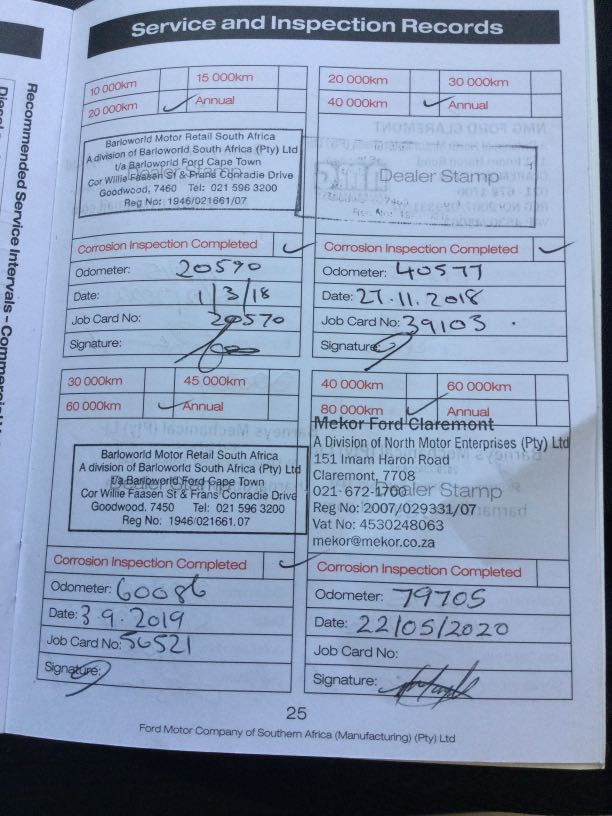 Service and Inspection Records
Recommended Service Intervals - Commercial
10 000km 15 000km
20 000km Annual
Barloworld Motor Retail South Africa
A division of Barloworld South Africa (Pty) Ltd
t/a Barloworld Ford Cape Town
Cor Willie Faasen St & Frans Conradie Drive
Goodwood, 7460 Tel: 021 596 3200
Reg No: 1946/021661/07
Corrosion Inspection Completed
Odometer: 20590
Date: 1/3/18
Job Card No: 20570
Signature:
20 000km 30 000km
40 000km Annual
Dealer Stamp
Corrosion Inspection Completed
Odometer: 40577
Date: 27.11.2018
Job Card No: 39103
Signature:
30 000km 45 000km
60 000km Annual
Barloworld Motor Retail South Africa
A division of Barloworld South Africa (Pty) Ltd
t/a Barloworld Ford Cape Town
Cor Willie Faasen St & Frans Conradie Drive
Goodwood. 7450 Tel: 021 596 3200
Reg No: 1946/021661.07
Corrosion Inspection Completed
Odometer: 60086
Date: 3.9.2019
Job Card No: 56521
Signature:
40 000km 60 000km
80 000km Annual
Mekor Ford Claremont
A Division of North Motor Enterprises (Pty) Ltd
151 Imam Haron Road
Claremont, 7708
021-672-1700 Dealer Stamp
Reg No: 2007/029331/07
Vat No: 4530248063
mekor@mekor.co.za
Corrosion Inspection Completed
Odometer: 79705
Date: 22/05/2020
Job Card No:
Signature:
25
Ford Motor Company of Southern Africa (Manufacturing) (Pty) Ltd